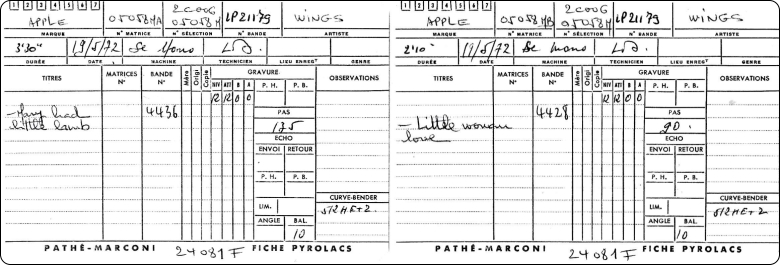 1 2 3 4 5 6 7
APPLE 05058MA 2C006 05058M LP21179 WINGS
MARQUE N° MATRICE N° SÉLECTION N° BANDE ARTISTE
3'30" 19/5/72 Se Mono
DURÉE DATE MACHINE TECHNICIEN LIEU ENREGT GENRE
TITRES MATRICES N° BANDE N° Mère Origi Copie GRAVURE OBSERVATIONS
NIV ATT B A P. H. P. B.
12 12 0 0
- Mary had 4436 PAS
little lamb 135
ECHO
ENVOI RETOUR
P. H. P. B.
CURVE-BENDER
LIM. 512 HE+2
ANGLE BAL.
10
PATHÉ-MARCONI 24081F FICHE PYROLACS
1 2 3 4 5 6 7
APPLE 05058MB 2C006 05058M LP21179 WINGS
MARQUE N° MATRICE N° SÉLECTION N° BANDE ARTISTE
2'10" 11/5/72 Se mono
DURÉE DATE MACHINE TECHNICIEN LIEU ENREGT GENRE
TITRES MATRICES N° BANDE N° Mère Origi Copie GRAVURE OBSERVATIONS
NIV ATT B A P. H. P. B.
12 12 0 0
4428 PAS
- Little woman 90
love ECHO
ENVOI RETOUR
P. H. P. B.
CURVE-BENDER
LIM. 512 HE+2
ANGLE BAL.
10
PATHÉ-MARCONI 24081F FICHE PYROLACS